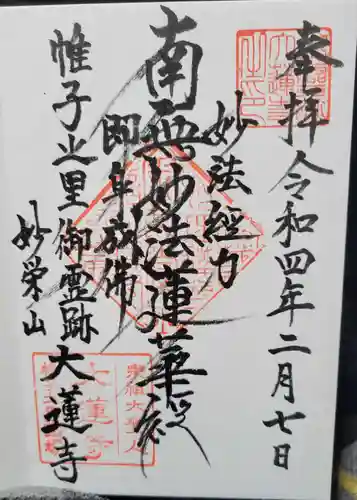 奉拝 令和四年二月七日
妙法經力
南無妙法蓮華経
即身成佛
帷子之里御霊跡大蓮寺
妙栄山
大蓮寺